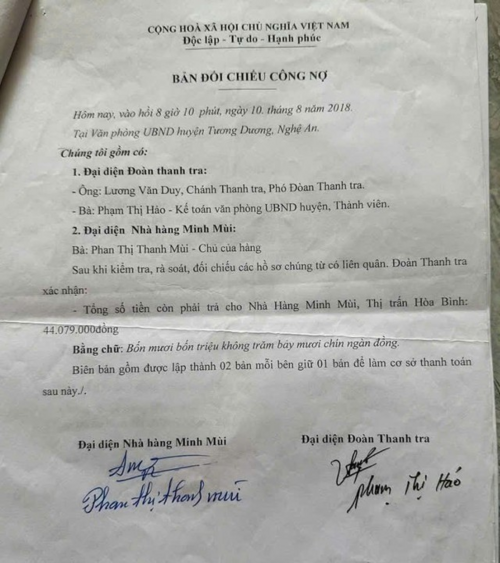 CỘNG HOÀ XÃ HỘI CHỦ NGHĨA VIỆT NAM
Độc lập - Tự do - Hạnh phúc
BẢN ĐỐI CHIẾU CÔNG NỢ
Hôm nay, vào hồi 8 giờ 10 phút, ngày 10. tháng 8 năm 2018.
Tại Văn phòng UBND huyện Tương Dương, Nghệ An.
Chúng tôi gồm có:
1. Đại diện Đoàn thanh tra:
- Ông: Lương Văn Duy, Chánh Thanh tra, Phó Đòan Thanh tra.
- Bà: Phạm Thị Hảo - Kế toán văn phòng UBND huyện, Thành viên.
2. Đại diện Nhà hàng Minh Mùi:
Bà: Phan Thị Thanh Mùi - Chủ của hàng
Sau khi kiểm tra, rà soát, đối chiếu các hồ sơ chúng từ có liên quân. Đoàn Thanh tra
xác nhận:
- Tổng số tiền còn phải trả cho Nhà Hàng Minh Mùi, Thị trấn Hòa Bình:
44.079.000đồng
Bằng chữ: Bốn mươi bốn triệu không trăm bảy mươi chín ngàn đồng.
Biên bản gồm được lập thành 02 bản mỗi bên giữ 01 bản để làm cơ sở thanh toán
sau này./.
Đại diện Nhà hàng Minh Mùi
Đại diện Đoàn Thanh tra
Phan Thị Thanh Mùi
Phạm Thị Hảo